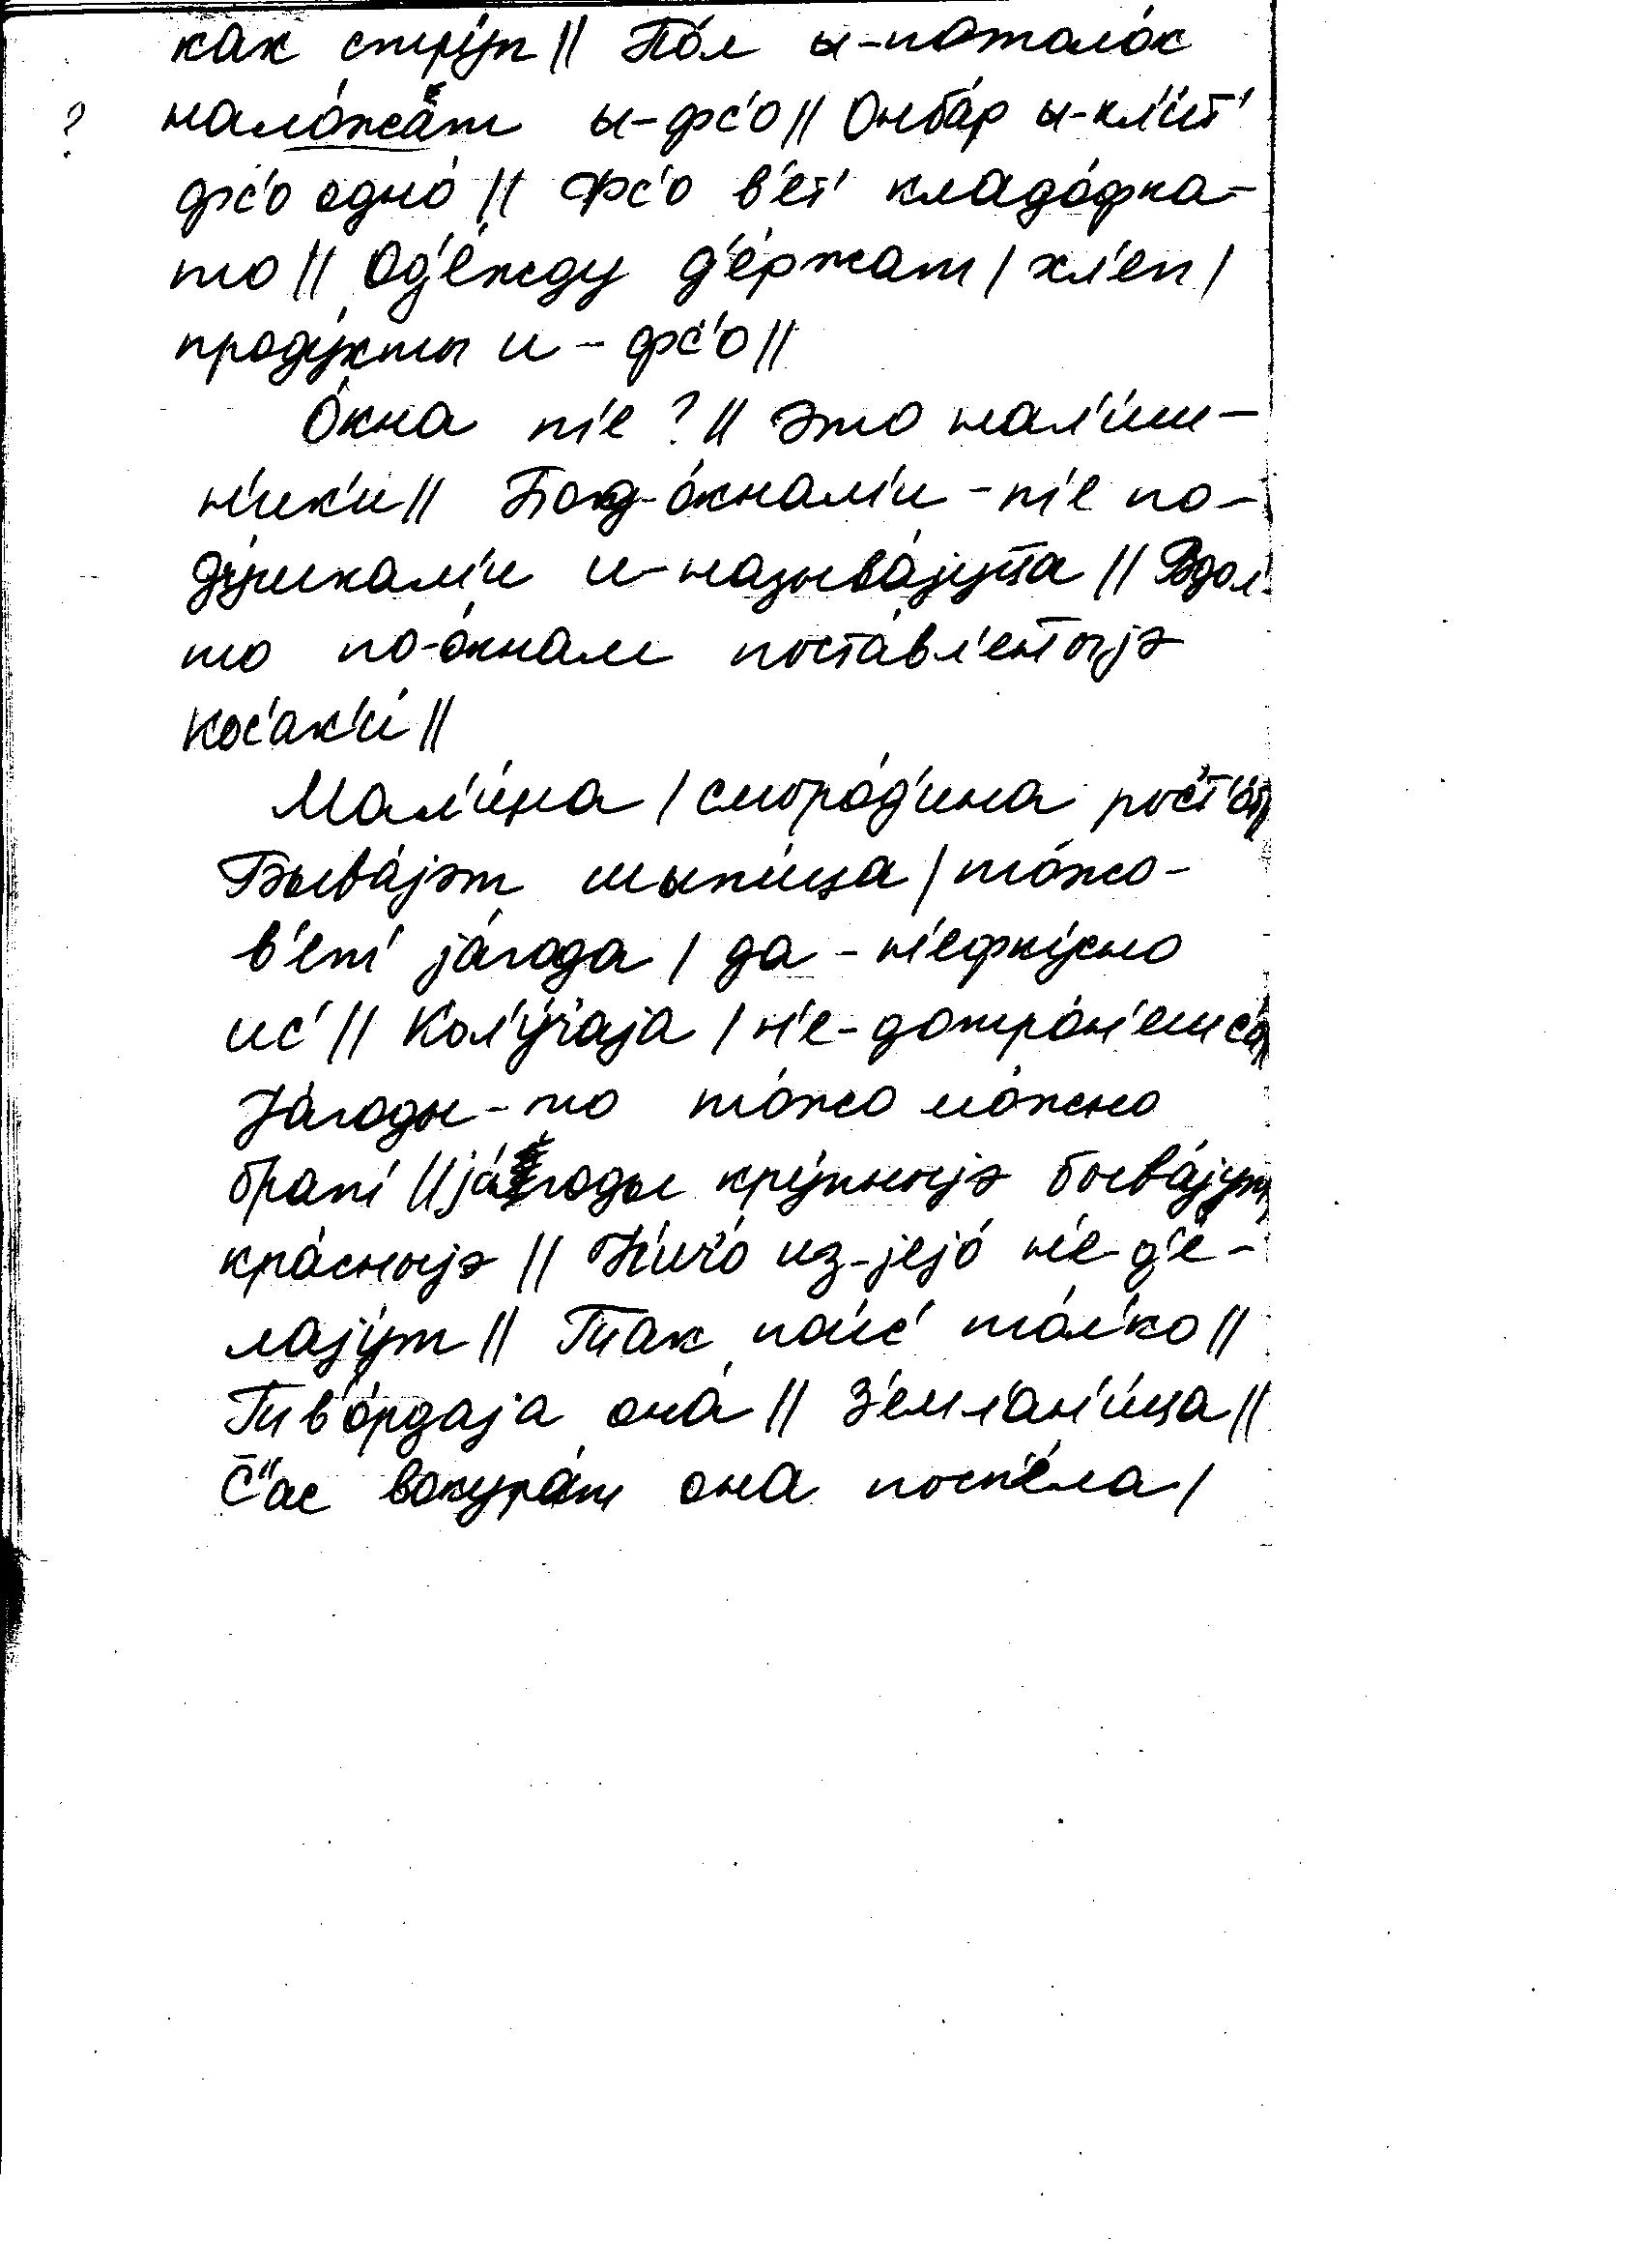 как стру́п || По́л ы-потоло́к
?  нало́жат ы-фс'о || Онба́р ы-кл'и́т'
фс'о одно́ || Фс'о в'ет' кладо́фка-
то || Од'е́жду д'е́ржат / хл'еп /
проду́кты и-фс'о ||
О́кна н'е? || Это нал'и́ш-
н'ик'и || Под-о́кнам'и-н'е по-
ду́шкам'и и-называ́јуца || Вдол'-
то по-о́кнам поста́вл'еныјэ
кос'ак'и́ ||
Мал'и́на / сморо́д'ина рос'т'о́т
Быва́јэт шыпи́ца / то́жо-
в'ет' já́года / да-н'ефку́сно
ис' || Кол'у́чаја / н'е-дотро́н'ешс'а
Já́годы-то то́жо мо́жно
брат' || já́годы кру́пныјэ быва́јут,
кра́сныјэ || Н'ичо́ из-јејо́ н'е-д'е́-
лајут || Так пои́с' то́л'ко ||
Тв'о́рдаја она́ || З'емл'ан'и́ца ||
С"ас вокура́т она посп'е́ла /